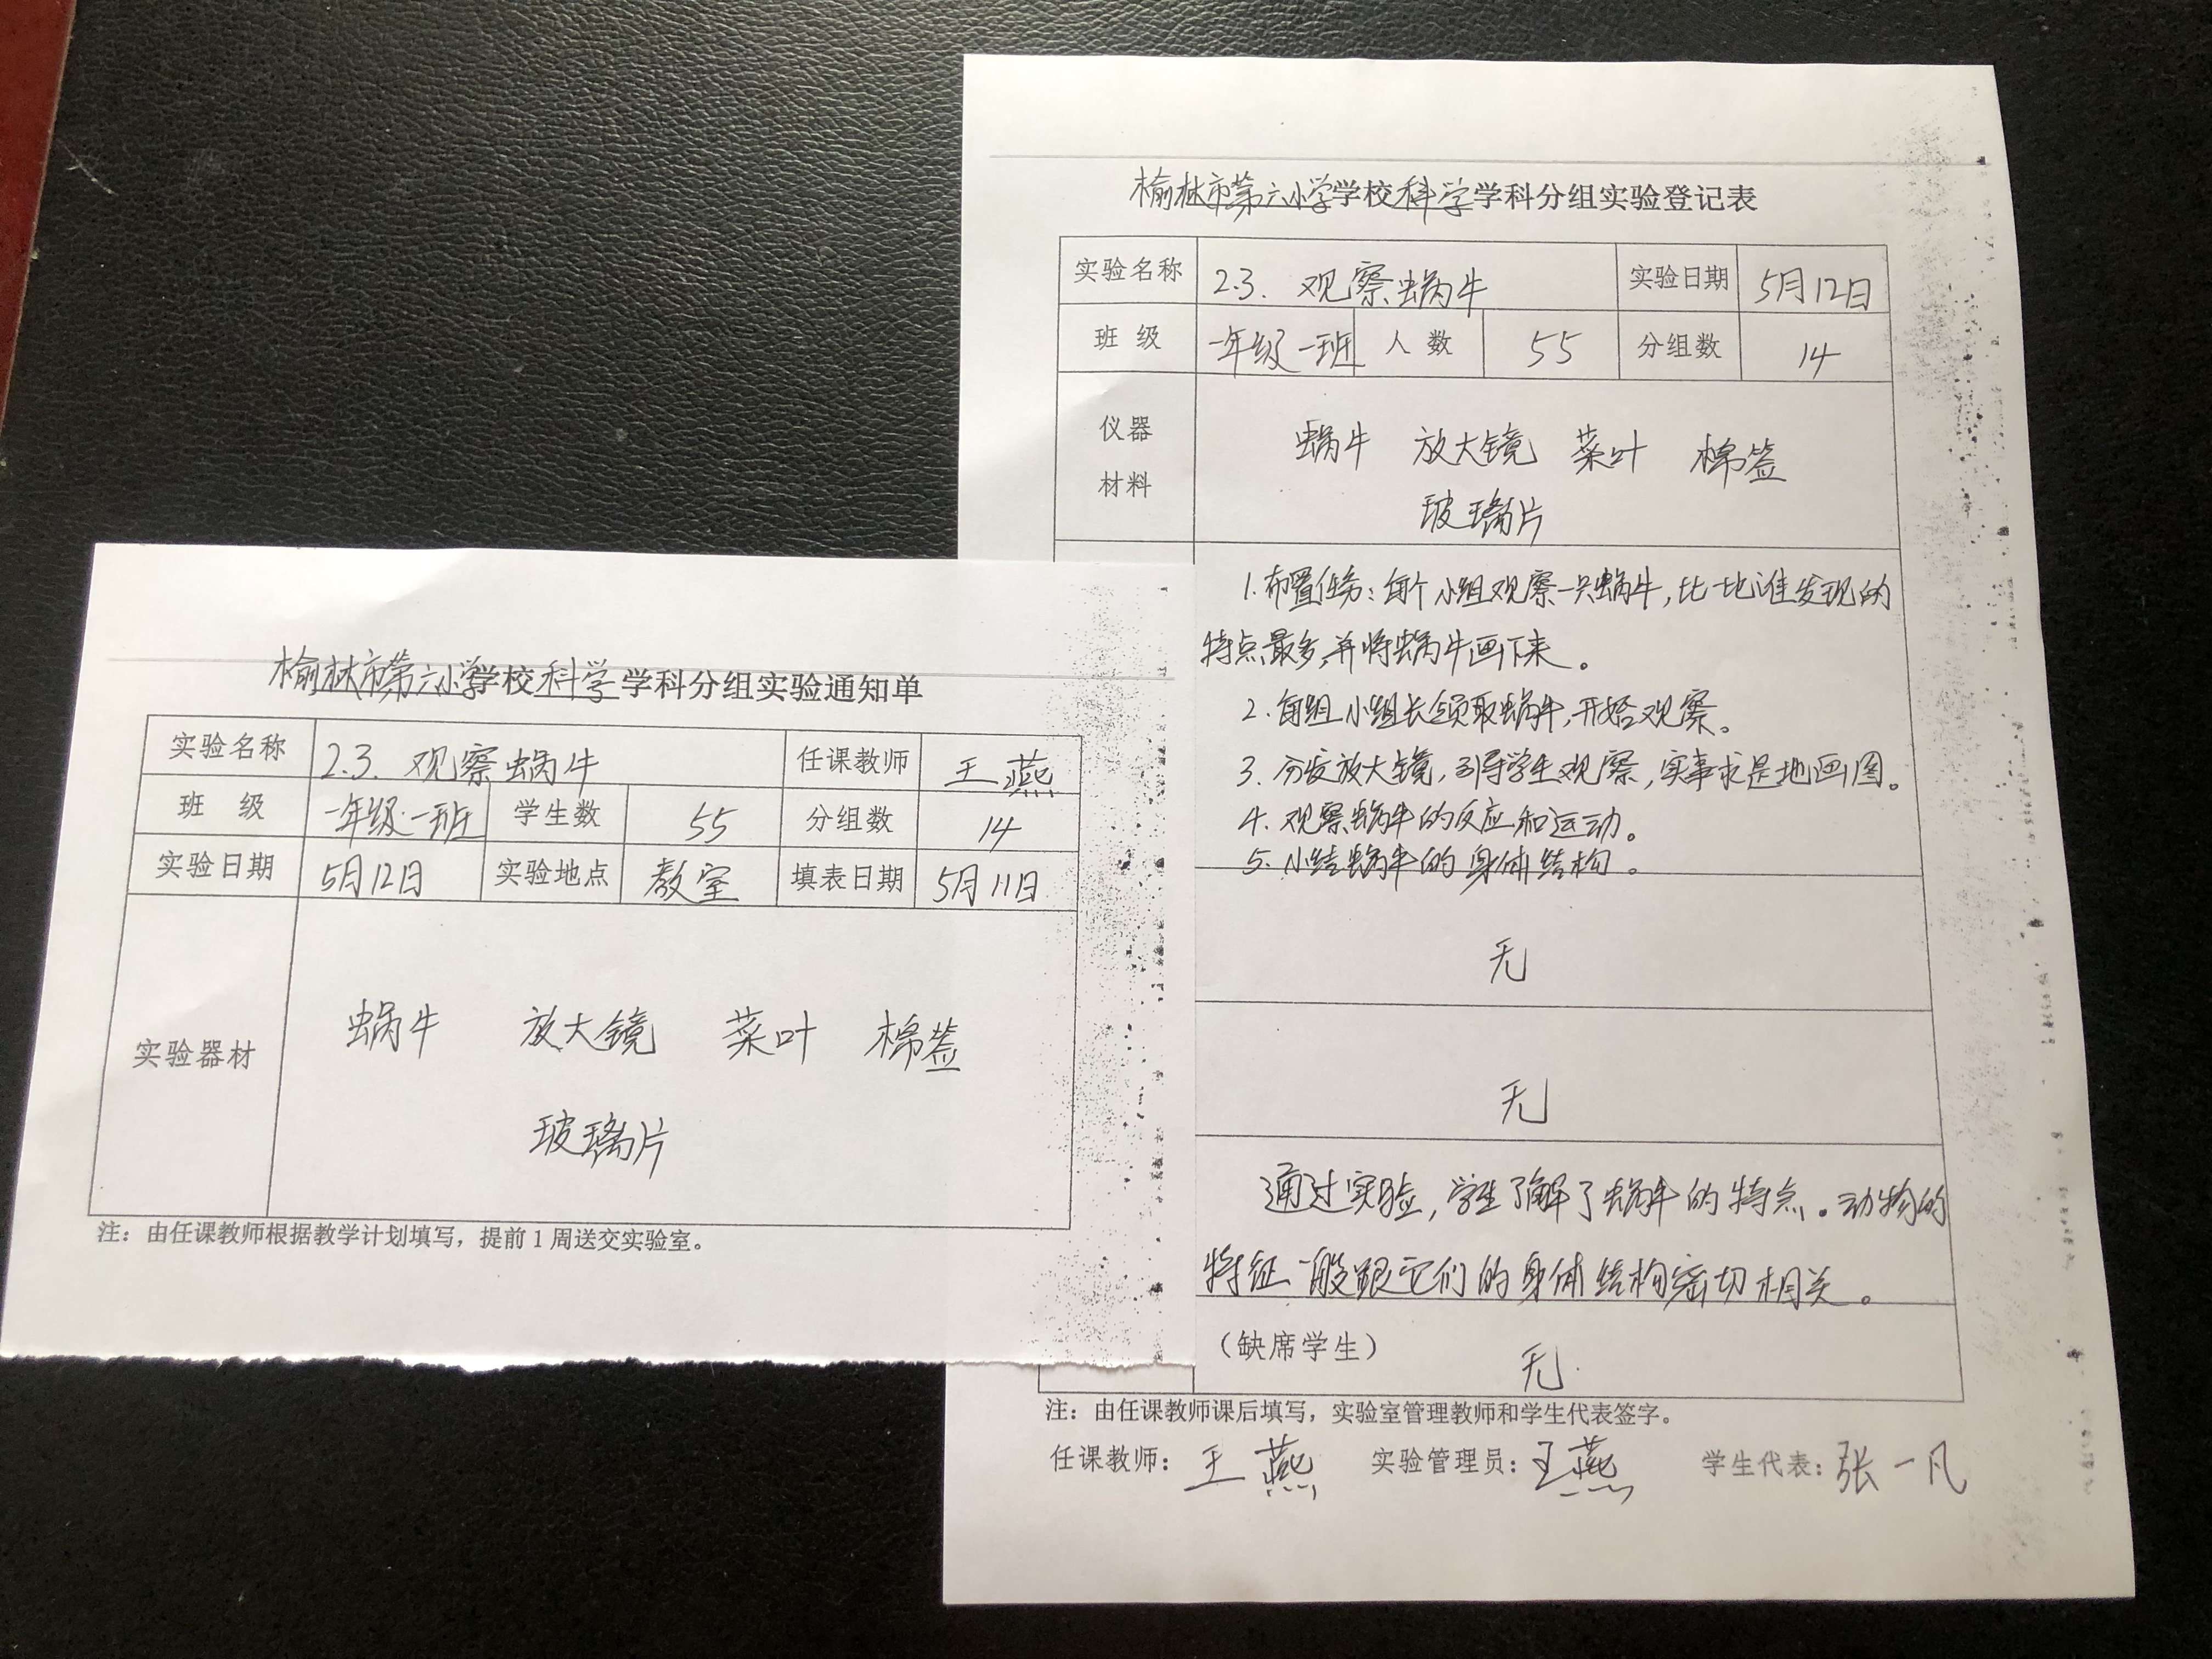 榆林市第六小学学校科学学科分组实验通知单
实验名称 2.3. 观察蜗牛 任课教师 王燕
班 级 一年级一班 学生数 55 分组数 14
实验日期 5月12日 实验地点 教室 填表日期 5月11日
实验器材 蜗牛 放大镜 菜叶 棉签
玻璃片
注：由任课教师根据教学计划填写，提前1周送交实验室。
榆林市第六小学学校科学学科分组实验登记表
实验名称 2.3. 观察蜗牛 实验日期 5月12日
班 级 一年级一班 人 数 55 分组数 14
仪器
材料
蜗牛 放大镜 菜叶 棉签
玻璃片
1.布置任务：每个小组观察一只蜗牛，比比谁发现的
特点最多，并将蜗牛画下来。
2.每组小组长领取蜗牛，开始观察。
3.分发放大镜，引导学生观察，实事求是地画图。
4.观察蜗牛的反应和运动。
5.小结蜗牛的身体结构。
无
无
通过实验，学生了解了蜗牛的特点。动物的
特征一般跟它们的身体结构密切相关。
（缺席学生） 无.
注：由任课教师课后填写，实验室管理教师和学生代表签字。
任课教师：王燕 实验管理员：王燕 学生代表：张一凡